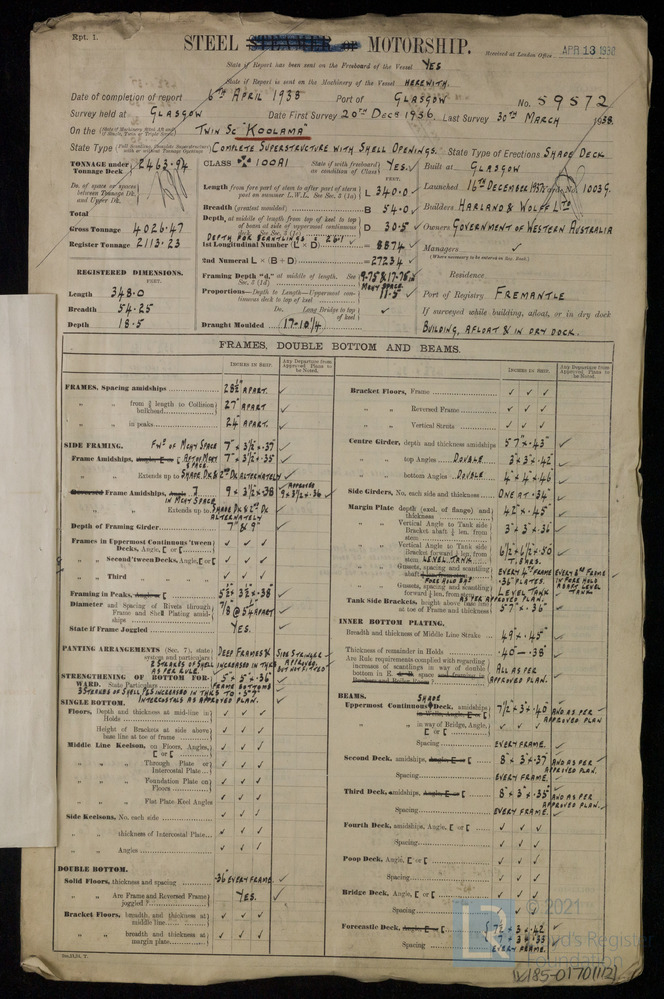 Rpt. 1.
STEEL STEAMER or MOTORSHIP.
Received at London Office APR 13 1938
State if Report has been sent on the Freeboard of the Vessel YES
State if Report is sent on the Machinery of the Vessel HEREWITH.
Date of completion of report 6TH APRIL 1938 Port of GLASGOW No. 59572
Survey held at GLASGOW Date First Survey 20TH DECR 1936. Last Survey 30TH MARCH 1938.
On the TWIN SC "KOOLAMA"
State Type COMPLETE SUPERSTRUCTURE WITH SHELL OPENINGS. State Type of Erections SHADE DECK
TONNAGE under Tonnage Deck 2463.94
CLASS 100A1 State if with freeboard as condition of Class YES.
Built at GLASGOW
Do. of space or spaces between Tonnage Dk. and Upper Dk.
Total
Gross Tonnage 4026.47
Register Tonnage 2113.23
REGISTERED DIMENSIONS.
FEET.
Length 348.0
Breadth 54.25
Depth 18.5
Length from fore part of stem to after part of stern post on summer L.W.L. See Sec. 2 (1a) L 340.0
Breadth (greatest moulded) B 54.0
Depth, at middle of length from top of keel to top of beam at side of uppermost continuous deck. See Sec. 2 (1c) D 30.5
DEPTH FOR SCANTLINGS = 26.1
1st Longitudinal Number (L × D) = 8874
2nd Numeral L × (B + D) = 27234
Framing Depth "d," at middle of length. See Sec. 2 (1d)
Proportions—Depth to Length—Uppermost continuous deck to top of keel 11.5
Do. Long Bridge to top of keel
Draught Moulded 17-10¼
Launched 16TH DECEMBER 1937 Yard No. 1003G.
Builders HARLAND & WOLFF LTD
Owners GOVERNMENT OF WESTERN AUSTRALIA
Managers
(Where necessary to be entered in Reg. Book.)
Residence
Port of Registry FREMANTLE
If surveyed while building, afloat, or in dry dock
BUILDING, AFLOAT & IN DRY DOCK.
FRAMES, DOUBLE BOTTOM AND BEAMS.
INCHES IN SHIP.
Any Departure from Approved Plans to be Noted.
FRAMES, Spacing amidships 28½" APART.
" " from ⅗ length to Collision bulkhead 27" APART.
" " in peaks 24" APART.
SIDE FRAMING. FWD OF MCHY SPACE 7" × 3½" × .37"
Frame Amidships, AFT OF MCHY SPACE 7" × 3½" × .35"
" " Extends up to SHADE DK & 2ND DK ALTERNATELY
Reversed Frame Amidships, IN MCHY SPACE 9 × 3½ × .38 APPROVED 9 × 3½ × .36
" " Extends up to SHADE DK & 2ND DK ALTERNATELY
Depth of Framing Girder 7" & 9"
Frames in Uppermost Continuous 'tween Decks, Angle, [ or [
" " Second 'tween Decks, Angle, [ or [
" " Third
Framing in Peaks, Angle or [ 5½ × 3½ × .38"
Diameter and Spacing of Rivets through Frame and Shell Plating amidships 7/8 @ 5¼ APART
State if Frame Joggled YES.
PANTING ARRANGEMENTS (Sec. 7), state system and particulars DEEP FRAMES & SIDE STRINGER APPROVED BUT NOT FITTED
2 STRAKES OF SHELL INCREASED IN THKS AS PER RULE
STRENGTHENING OF BOTTOM FORWARD. State Particulars 5" × 5" × .36" FRAME BOTTOMS
INTERCOSTALS AS APPROVED PLAN.
SINGLE BOTTOM.
Floors, Depth and thickness at mid-line in Holds
" Height of Brackets at side above base line at toe of frame
Middle Line Keelson, on Floors, Angles, [ or [
" " Through Plate or Intercostal Plate
" " Foundation Plate on Floors
" " Flat Plate Keel Angles
Side Keelsons, No. each side
" " thickness of Intercostal Plate
" " Angles
DOUBLE BOTTOM.
Solid Floors, thickness and spacing .36" EVERY FRAME.
" " Are Frame and Reversed Frame joggled? YES.
Bracket Floors, breadth and thickness at middle line
" " breadth and thickness at margin plate
Bracket Floors, Frame
" " Reversed Frame
" " Vertical Struts
Centre Girder, depth and thickness amidships 57" × .43"
" " top Angles DOUBLE 3" × 3" × .42"
" " bottom Angles DOUBLE 4" × 4" × .46"
Side Girders, No. each side and thickness ONE AT .34"
Margin Plate depth (excl. of flange) and thickness 42" × .45"
" " Vertical Angle to Tank side Bracket abaft ¼ len. from stem 3" × 3" × .36"
" " Vertical Angle to Tank side Bracket forward ¼ len. from stem 6½" × 6½" × .50 T. BARS.
" " Gussets, spacing and scantling abaft
LEVEL TANK EVERY 4TH FRAME .36" PLATES. EVERY 8RD FRAME IN FORE HOLD ABAFT LEVEL TANK
FORE HOLD
" " Gussets, spacing and scantling forward ¼ len. from stem LEVEL TANK AS PER APPROVED PLAN.
Tank Side Brackets, height above base line at toe of Frame and thickness 57" × .36"
INNER BOTTOM PLATING.
Breadth and thickness of Middle Line Strake 49" × .45"
Thickness of remainder in Holds .40" – .38"
Are Rule requirements complied with regarding increases of scantlings in way of double bottom in E. & B. space ALL AS PER APPROVED PLAN.
BEAMS.
Uppermost Continuous SHADE Deck, amidships 7½" × 3" × .40" AND AS PER APPROVED PLAN
" " in way of Bridge, Angle, [ or [
Spacing EVERY FRAME.
Second Deck, amidships, Angle, [ or [ 8" × 3" × .37" AND AS PER APPROVED PLAN.
Spacing EVERY FRAME.
Third Deck, amidships, Angle, [ or [ 8" × 3" × .35" AND AS PER APPROVED PLAN.
Spacing EVERY FRAME.
Fourth Deck, amidships, Angle, [ or [
Spacing
Poop Deck, Angle, [ or [
Spacing
Bridge Deck, Angle, [ or [
Spacing
Forecastle Deck, Angle, [ or [ 7½ × 3 × .42
7 × 3 × .33
Spacing EVERY FRAME.
© 2021
LR
Lloyd's Register
Foundation
W185-0170(1/2)